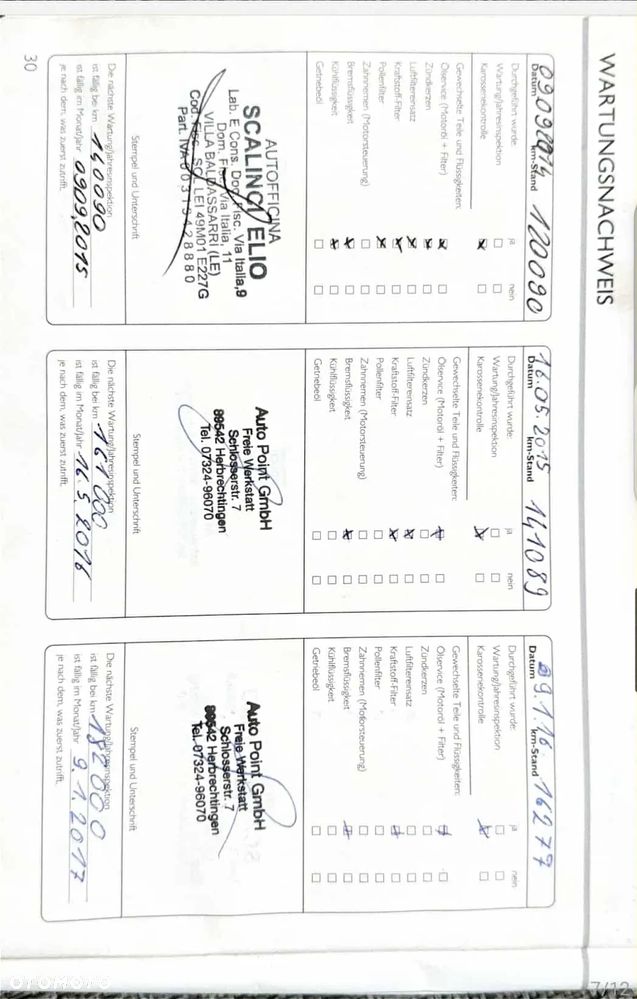 WARTUNGSNACHWEIS
09.09.2014 120090
Datum km-Stand
Durchgeführt wurde: ja nein
Wartung/Jahresinspektion
Karosseriekontrolle
Gewechselte Teile und Flüssigkeiten:
Ölservice (Motoröl + Filter)
Zündkerzen
Luftfiltereinsatz
Kraftstoff-Filter
Pollenfilter
Zahnriemen (Motorsteuerung)
Bremsflüssigkeit
Kühlflüssigkeit
Getriebeöl
AUTOFFICINA
SCALINCI ELIO
Lab. E Cons. Doc. Fisc. Via Italia,9
Dom. Fisc. Via Italia, 11
VILLA BALDASSARRI (LE)
Cod. Fisc. SCL LEI 49M01 E227G
Part. IVA
Stempel und Unterschrift
Die nächste Wartung/Jahresinspektion
ist fällig bei km 140090
ist fällig im Monat/Jahr 09.09.2015
je nach dem, was zuerst zutrifft.
16.05.2015 141089
Datum km-Stand
Durchgeführt wurde: ja nein
Wartung/Jahresinspektion
Karosseriekontrolle
Gewechselte Teile und Flüssigkeiten:
Ölservice (Motoröl + Filter)
Zündkerzen
Luftfiltereinsatz
Kraftstoff-Filter
Pollenfilter
Zahnriemen (Motorsteuerung)
Bremsflüssigkeit
Kühlflüssigkeit
Getriebeöl
Auto Point GmbH
Freie Werkstatt
Schlosserstr. 7
89542 Herbrechtingen
Tel. 07324-96070
Stempel und Unterschrift
Die nächste Wartung/Jahresinspektion
ist fällig bei km 161000
ist fällig im Monat/Jahr 16.5.2016
je nach dem, was zuerst zutrifft.
9.1.16 16277
Datum km-Stand
Durchgeführt wurde: ja nein
Wartung/Jahresinspektion
Karosseriekontrolle
Gewechselte Teile und Flüssigkeiten:
Ölservice (Motoröl + Filter)
Zündkerzen
Luftfiltereinsatz
Kraftstoff-Filter
Pollenfilter
Zahnriemen (Motorsteuerung)
Bremsflüssigkeit
Kühlflüssigkeit
Getriebeöl
Auto Point GmbH
Freie Werkstatt
Schlosserstr. 7
89542 Herbrechtingen
Tel. 07324-96070
Stempel und Unterschrift
Die nächste Wartung/Jahresinspektion
ist fällig bei km 182000
ist fällig im Monat/Jahr 9.1.2017
je nach dem, was zuerst zutrifft.
30
OTOMOTO
7/12